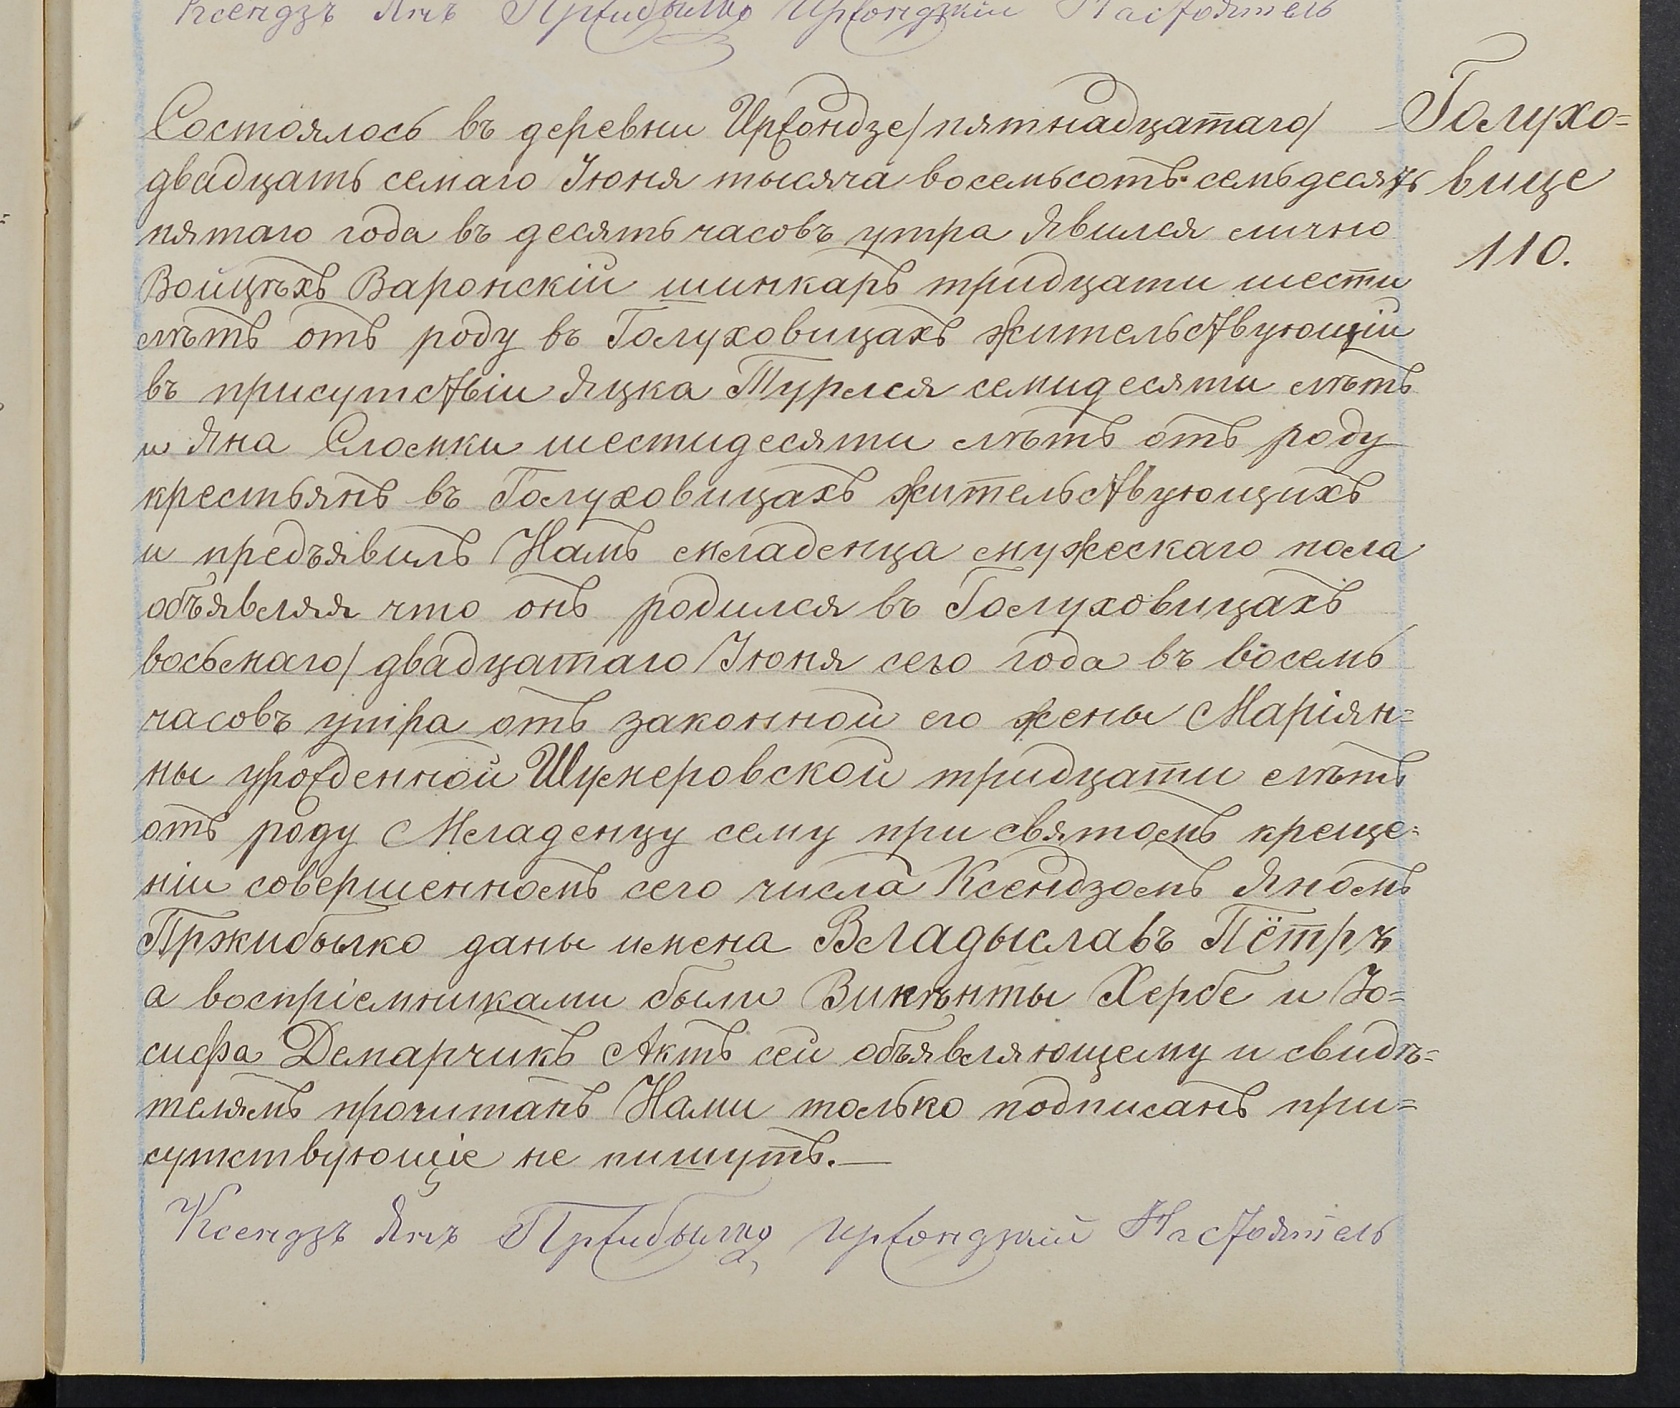 Ксендзъ Янъ Пржибылко Иржондзкій Настоятель
Состоялось въ деревни Иржондзе/пятнадцатаго/
двадцать семаго Іюня тысяча восемьсотъ семьдесятъ
пятаго года въ десять часовъ утра Явился лично
Войцѣхъ Варонскій шинкаръ тридцати шести
лѣтъ отъ роду въ Голуховицахъ жительствующій
въ присутствіи Яцка Турлея семидесяти лѣтъ
и Яна Сломки шестидесяти лѣтъ отъ роду
крестьянъ въ Голуховицахъ жительствующихъ
и предъявилъ Намъ младенца мужескаго пола
объявляя что онъ родился въ Голуховицахъ
восьмаго/двадцатаго/Іюня сего года въ восемь
часовъ утра отъ законной его жены Маріян=
ны урожденной Шумеровской тридцати лѣтъ
отъ роду Младенцу сему при святомъ креще=
ніи совершенномъ сего числа Ксендзомъ Яномъ
Пржибылко даны имена Владыславъ Пётръ
а воспріемниками были Викѣнты Хербе и Іо=
сифа Демарчикъ Актъ сей объявляющему и свидѣ=
телямъ прочитанъ Нами только подписанъ при=
сутствующіе не пишутъ.—
Ксендзъ Янъ Пржибылко Иржондзкій Настоятель
Голухо=
вице
110.